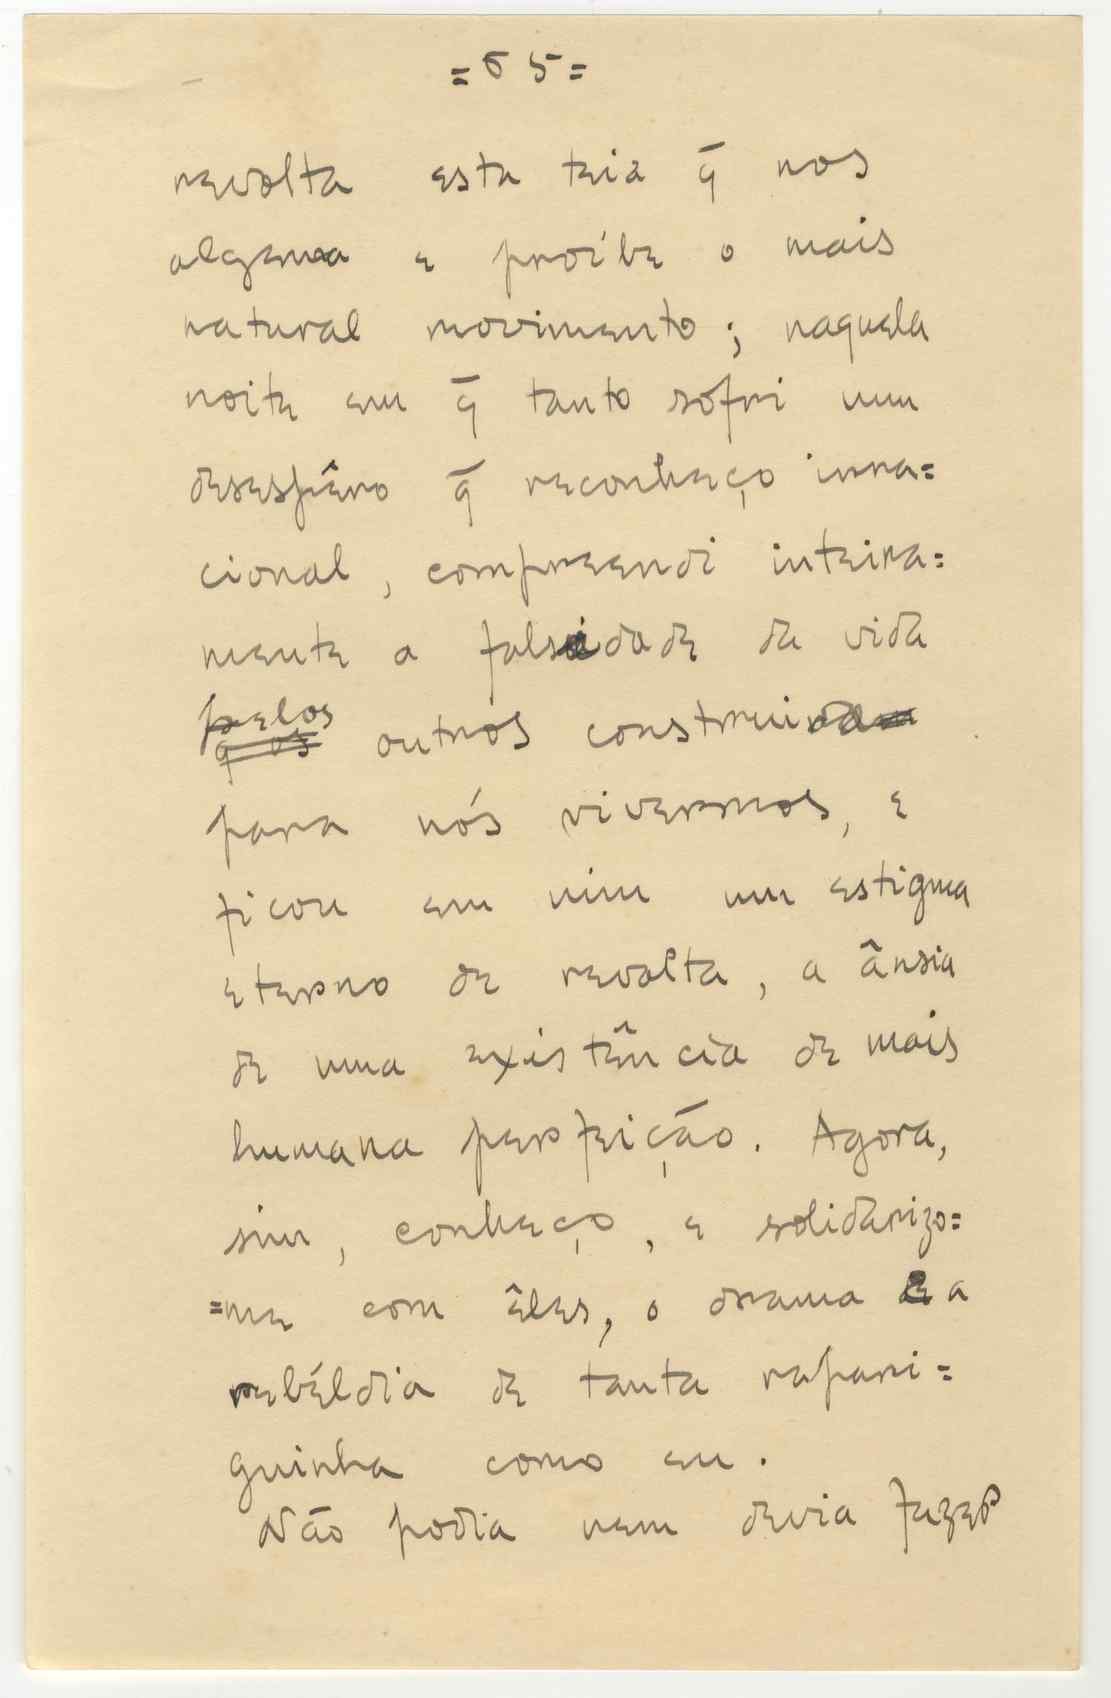 = 65 =
revolta esta teia q̄ nos
algema e proíbe o mais
natural movimento; naquela
noite em q̄ tanto sofri num
desespêro q̄ reconheço irra=
cional, compreendi inteira=
mente a falsidade da vida
pelos
q̄ os outros construida
para nós vivermos, e
ficou em mim um estigma
eterno de revolta, a ânsia
de uma existência de mais
humana perfeição. Agora,
sim, conheço, e solidarizo=
=me com êles, o drama e a
rebéldia de tanta rapari=
guinha como eu.
Não podia nem devia fazer